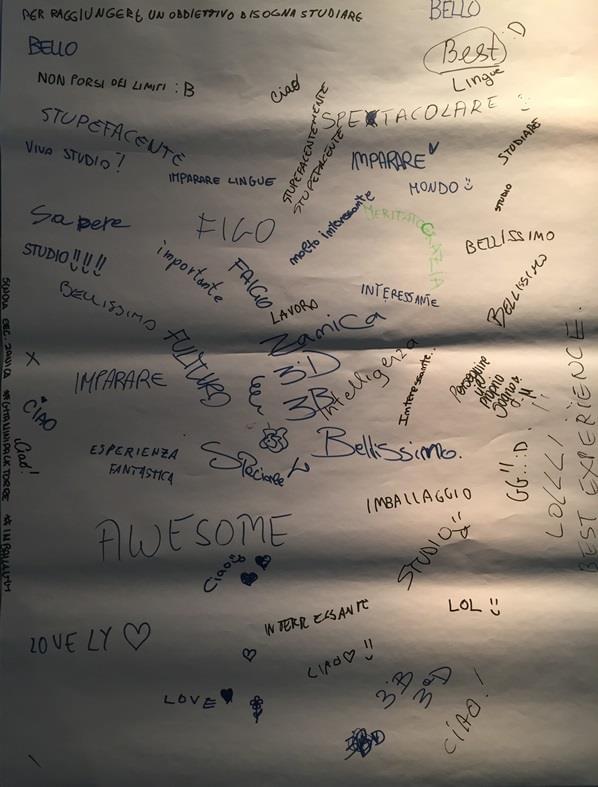 PER RAGGIUNGERE UN OBBIETTIVO BISOGNA STUDIARE
BELLO
BELLO
Best :D
Lingue
NON PORSI DEI LIMITI :B
Ciao
STUPEFACENTEMENTE
STUPEFACENTE
SPETTACOLARE
STUPEFACENTE
STUDIARE
VIVA STUDIO!
IMPARARE LINGUE
IMPARARE
MONDO
STUDIO
Sapere
FIGO
molto interessante
MERITATO
GRAZIA
BELLISSIMO
STUDIO!!!
importante
FAIGO
INTERESSANTE
BELLISSIMO
BELLISSIMO
LAVORO
Zanica
FUTURO
3D
3B
Intelligenza
Interessante..
Perseguire
IL
PROPRIO
SOGNO
X
IMPARARE
CIAO
Ciao!
ESPERIENZA
FANTASTICA
Speciale
Bellissimo.
IMBALLAGGIO
GG!!...D:
LOLLLI !!
BEST EXPERIENCE.
AWESOME
Ciao
STUDIO
INTERRESSANTE
LOL
LOVELY
CIAO
LOVE
3B
3D
CIAO!